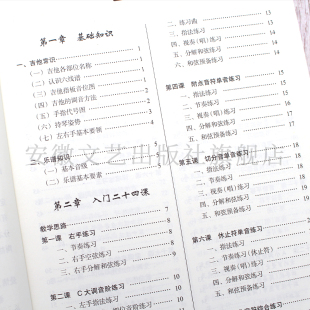 第一章 基础知识
一、吉他常识 1
（一）吉他各部位名称 1
（二）认识六线谱 1
（三）吉他指板音位图 2
（四）吉他的调音方法 2
（五）手指代号图 2
（六）持琴姿势
（七）左右手基本要领 4
二、乐谱知识
（一）基本音级
（二）乐谱基本要素
第二章 入门二十四课
教学思路 7
第一课 右手练习 8
一、节奏练习 8
二、右手空弦练习 9
三、右手分解和弦练习
第二课 C大调音阶练习 10
一、左手指法练习 10
二、练习曲 13
三、指法练习 13
四、视奏（唱）练习 14
五、分解和弦练习
六、和弦预备练习
第四课 附点音符单音练习
一、指法练习
二、节奏练习
三、视奏（唱）练习
四、分解和弦练习
五、和弦预备练习
第五课 切分音单音练习 18
一、指法练习 18
二、节奏练习
三、视奏（唱）练习
四、分解和弦练习
五、和弦预备练习
第六课 休止符单音练习
一、指法练习
二、节奏练习（休止符）
三、视奏（唱）练习
四、分解和弦练习
五、和弦预备练习
安徽文艺出版社旗舰店